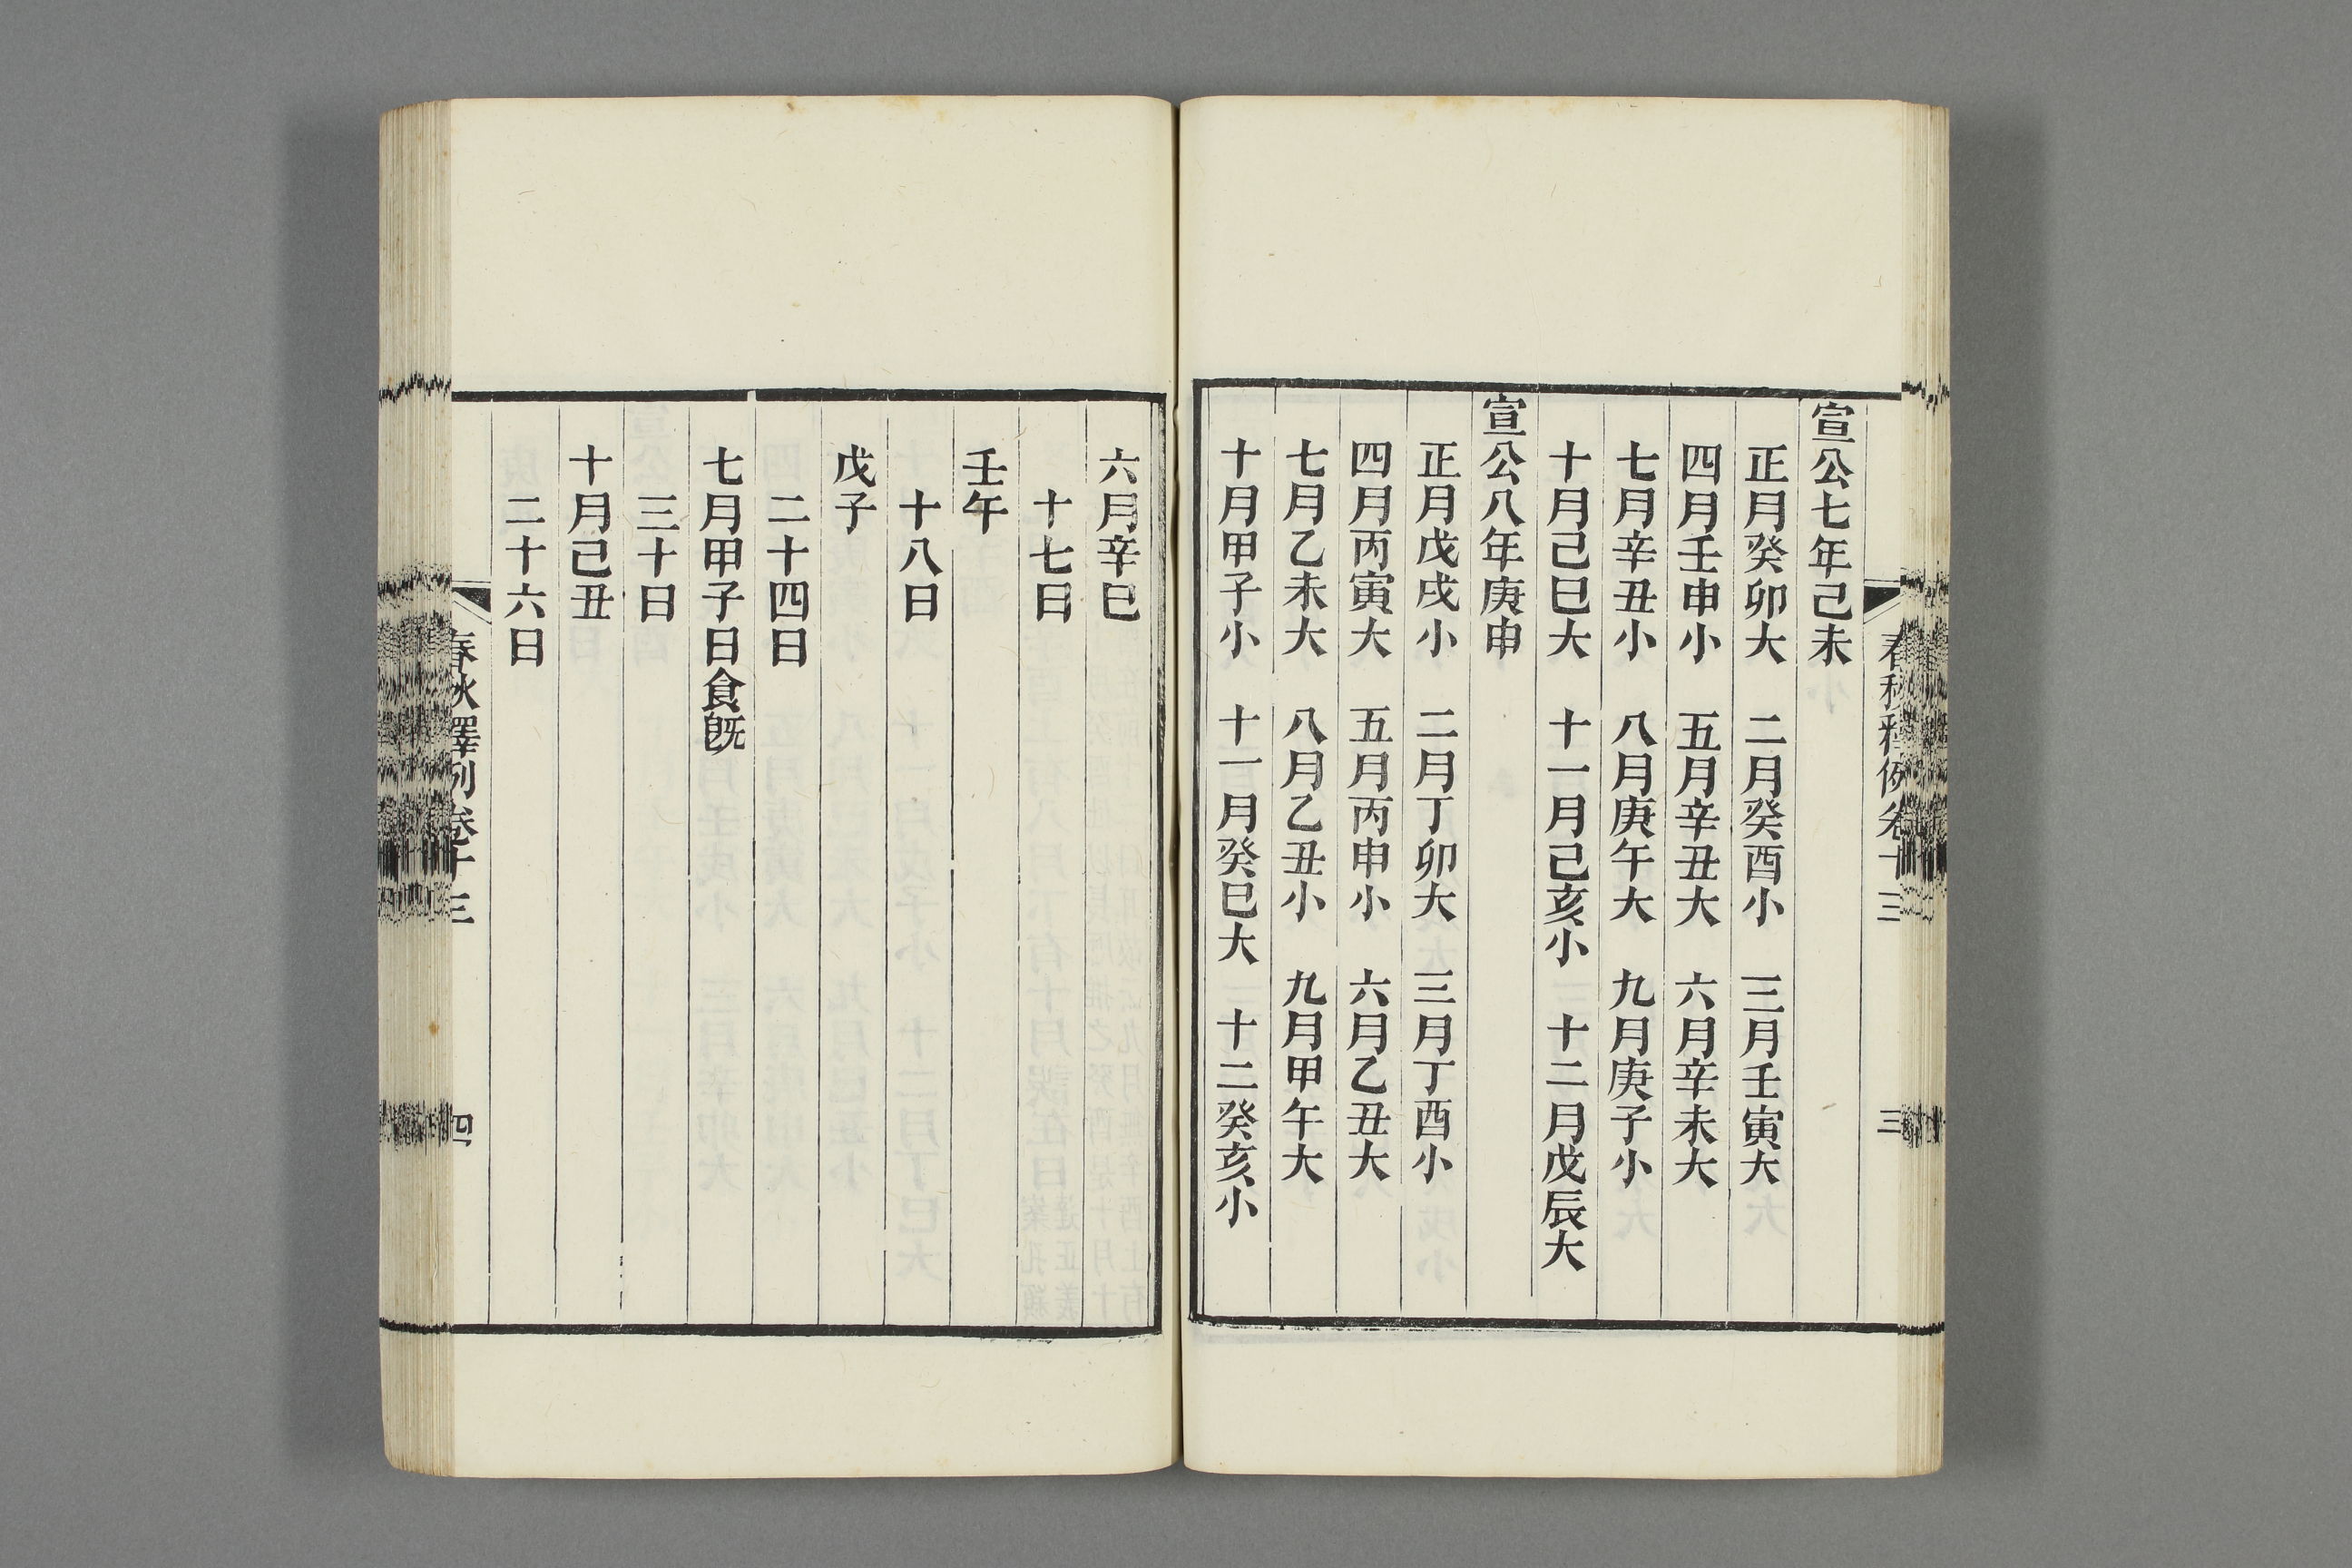 春秋釋例卷十三
三
宣公七年己未
正月癸卯大 二月癸酉小 三月壬寅大
四月壬申小 五月辛丑大 六月辛未大
七月辛丑小 八月庚午大 九月庚子小
十月己巳大 十一月己亥小 十二月戊辰大
宣公八年庚申
正月戊戌小 二月丁卯大 三月丁酉小
四月丙寅大 五月丙申小 六月乙丑大
七月乙未大 八月乙丑小 九月甲午大
十月甲子小 十一月癸巳大 十二癸亥小
六月辛巳
十七日
壬午
十八日
戊子
二十四日
七月甲子日食旣
三十日
十月己丑
二十六日
春秋釋例卷十三
四